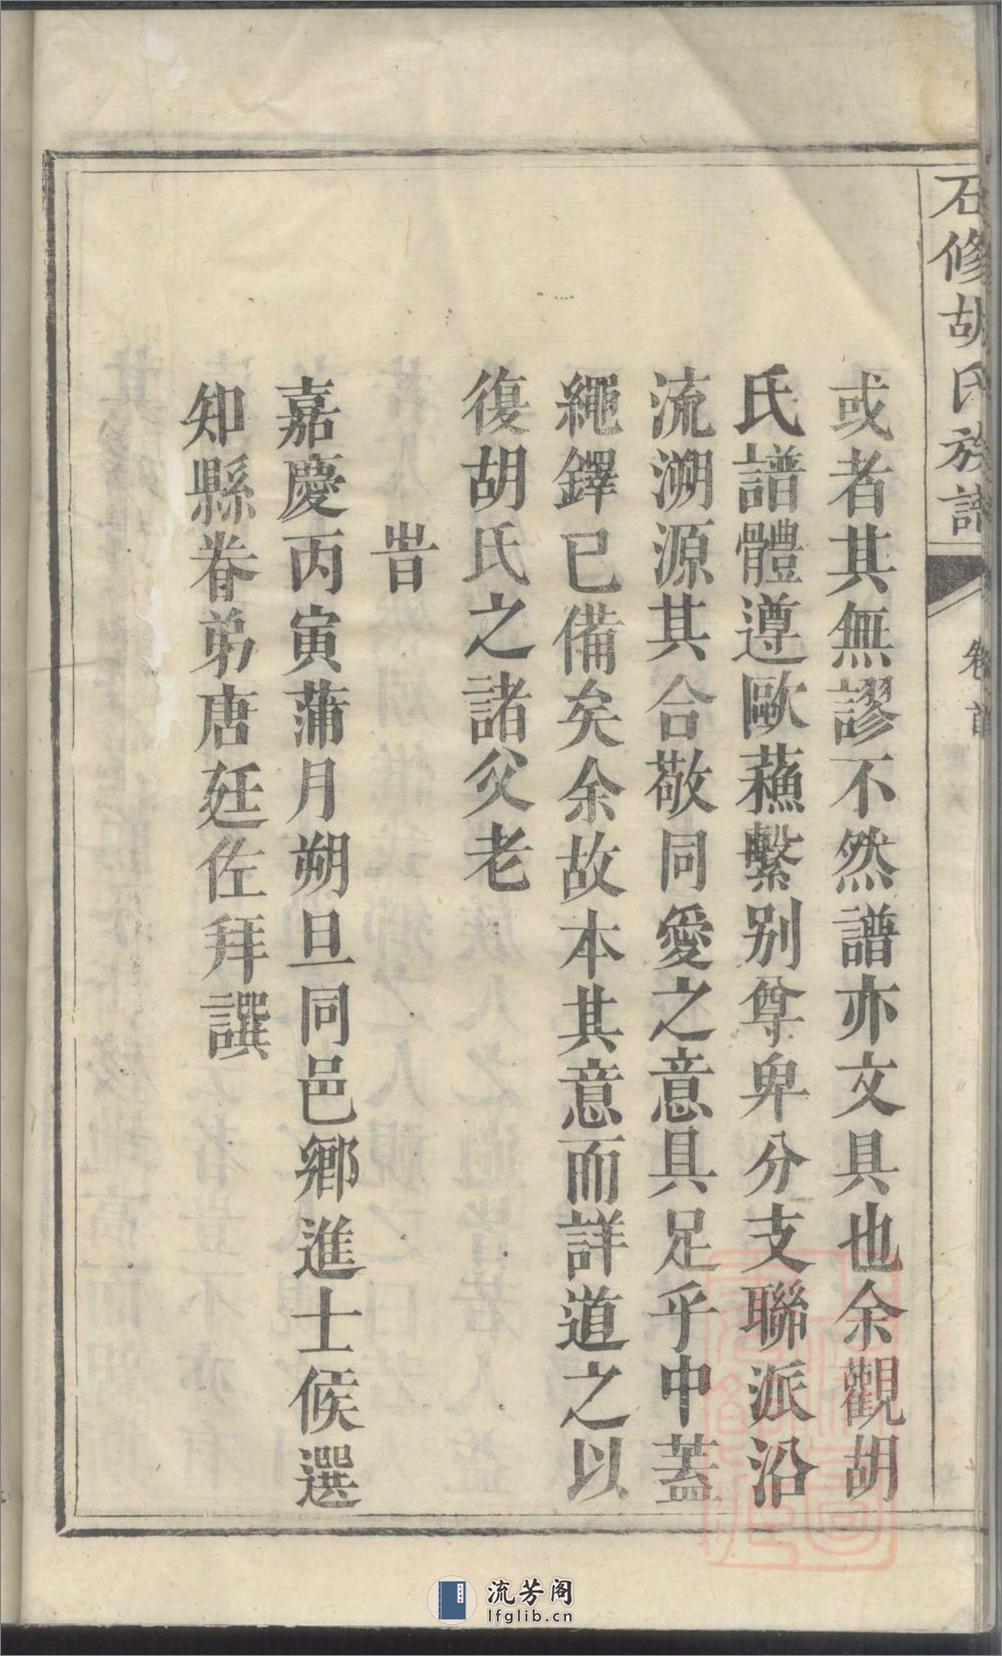 石修胡氏族譜
卷首
或者其無謬不然譜亦文具也余觀胡
氏譜體遵歐蘓繫别尊卑分支聯派沿
流溯源其合敬同愛之意具足乎中蓋
繩鐸已備矣余故本其意而詳道之以
復胡氏之諸父老
旹
嘉慶丙寅蒲月朔旦同邑鄉進士候選
知縣眷弟唐廷佐拜譔
流芳阁
lfglib.cn